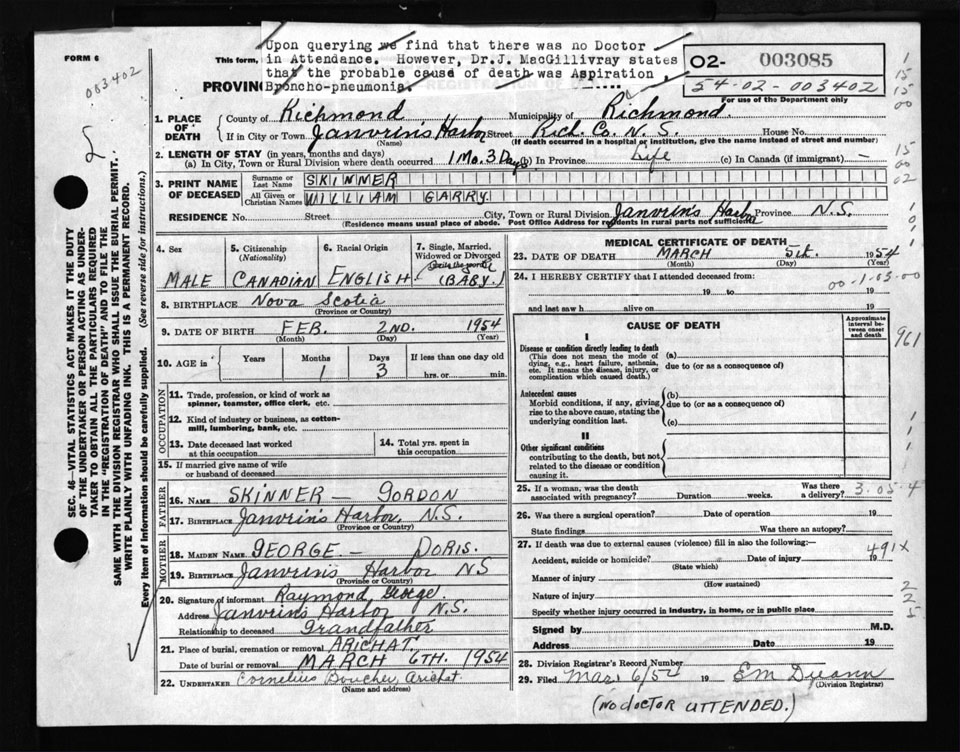 FORM 6
003402
This form,
Upon querying we find that there was no Doctor
in Attendance. However, Dr.J. MacGillivray states
that the probable cause of death was Aspiration
Broncho-pneumonia.
PROVIN
02- 003085
54-02-003402
For use of the Department only
1. PLACE OF DEATH
County of Richmond Municipality of Richmond
If in City or Town Janvrin's Harbor Street Rich. Co. N. S. House No.
(Name) (If death occurred in a hospital or institution, give the name instead of street and number)
2. LENGTH OF STAY (in years, months and days)
(a) In City, Town or Rural Division where death occurred 1 Mo. 3 Days (b) In Province Life (c) In Canada (if immigrant) —
3. PRINT NAME OF DECEASED
Surname or Last Name SKINNER
All Given or Christian Names WILLIAM GARRY.
RESIDENCE No. Street City, Town or Rural Division Janvrin's Harbor Province N.S.
(Residence means usual place of abode. Post Office Address for residents in rural parts not sufficient)
4. Sex MALE
5. Citizenship (Nationality) CANADIAN
6. Racial Origin ENGLISH
7. Single, Married, Widowed or Divorced
(Write the word)
(BABY.)
8. BIRTHPLACE Nova Scotia
(Province or Country)
9. DATE OF BIRTH FEB. 2ND. 1954
(Month) (Day) (Year)
10. AGE in Years Months Days If less than one day old
1 3 hrs. or min.
OCCUPATION
11. Trade, profession, or kind of work as spinner, teamster, office clerk, etc.
12. Kind of industry or business, as cotton-mill, lumbering, bank, etc.
13. Date deceased last worked at this occupation
14. Total yrs. spent in this occupation
15. If married give name of wife or husband of deceased
FATHER
16. NAME SKINNER — GORDON
17. BIRTHPLACE Janvrin's Harbor, N.S.
(Province or Country)
MOTHER
18. MAIDEN NAME GEORGE — DORIS.
19. BIRTHPLACE Janvrin's Harbor NS
(Province or Country)
20. Signature of informant Raymond George.
Address Janvrin's Harbor N.S.
Relationship to deceased Grandfather
21. Place of burial, cremation or removal ARICHAT.
Date of burial or removal MARCH 6TH. 1954
22. UNDERTAKER Cornelius Boucher Arichat.
(Name and address)
MEDICAL CERTIFICATE OF DEATH
23. DATE OF DEATH MARCH 5th. 1954
(Month) (Day) (Year)
24. I HEREBY CERTIFY that I attended deceased from:
00-1-03-00
19 to 19
and last saw h alive on 19
CAUSE OF DEATH
Approximate interval between onset and death
I
Disease or condition directly leading to death
(This does not mean the mode of dying, e.g., heart failure, asthenia, etc. It means the disease, injury, or complication which caused death.)
(a)
due to (or as a consequence of)
Antecedent causes
Morbid conditions, if any, giving rise to the above cause, stating the underlying condition last.
(b)
due to (or as a consequence of)
(c)
II
Other significant conditions
contributing to the death, but not related to the disease or condition causing it.
25. If a woman, was the death associated with pregnancy? Duration weeks. Was there a delivery? 3-05-4
26. Was there a surgical operation? Date of operation 19
State findings Was there an autopsy?
27. If death was due to external causes (violence) fill in also the following:—
491X
Accident, suicide or homicide? Date of injury 19
(State which)
Manner of injury
(How sustained)
Nature of injury
Specify whether injury occurred in industry, in home, or in public place
Signed by M.D.
Address Date 19
28. Division Registrar's Record Number
29. Filed Mar. 6/54 19
(Division Registrar)
(NO DOCTOR ATTENDED.)
961
SEC. 46—VITAL STATISTICS ACT MAKES IT THE DUTY
OF THE UNDERTAKER OR PERSON ACTING AS UNDER-
TAKER TO OBTAIN ALL THE PARTICULARS REQUIRED
IN THE "REGISTRATION OF DEATH" AND TO FILE THE
SAME WITH THE DIVISION REGISTRAR WHO SHALL ISSUE THE BURIAL PERMIT.
WRITE PLAINLY WITH UNFADING INK. THIS IS A PERMANENT RECORD.
Every item of Information should be carefully supplied. (See reverse side for instructions.)